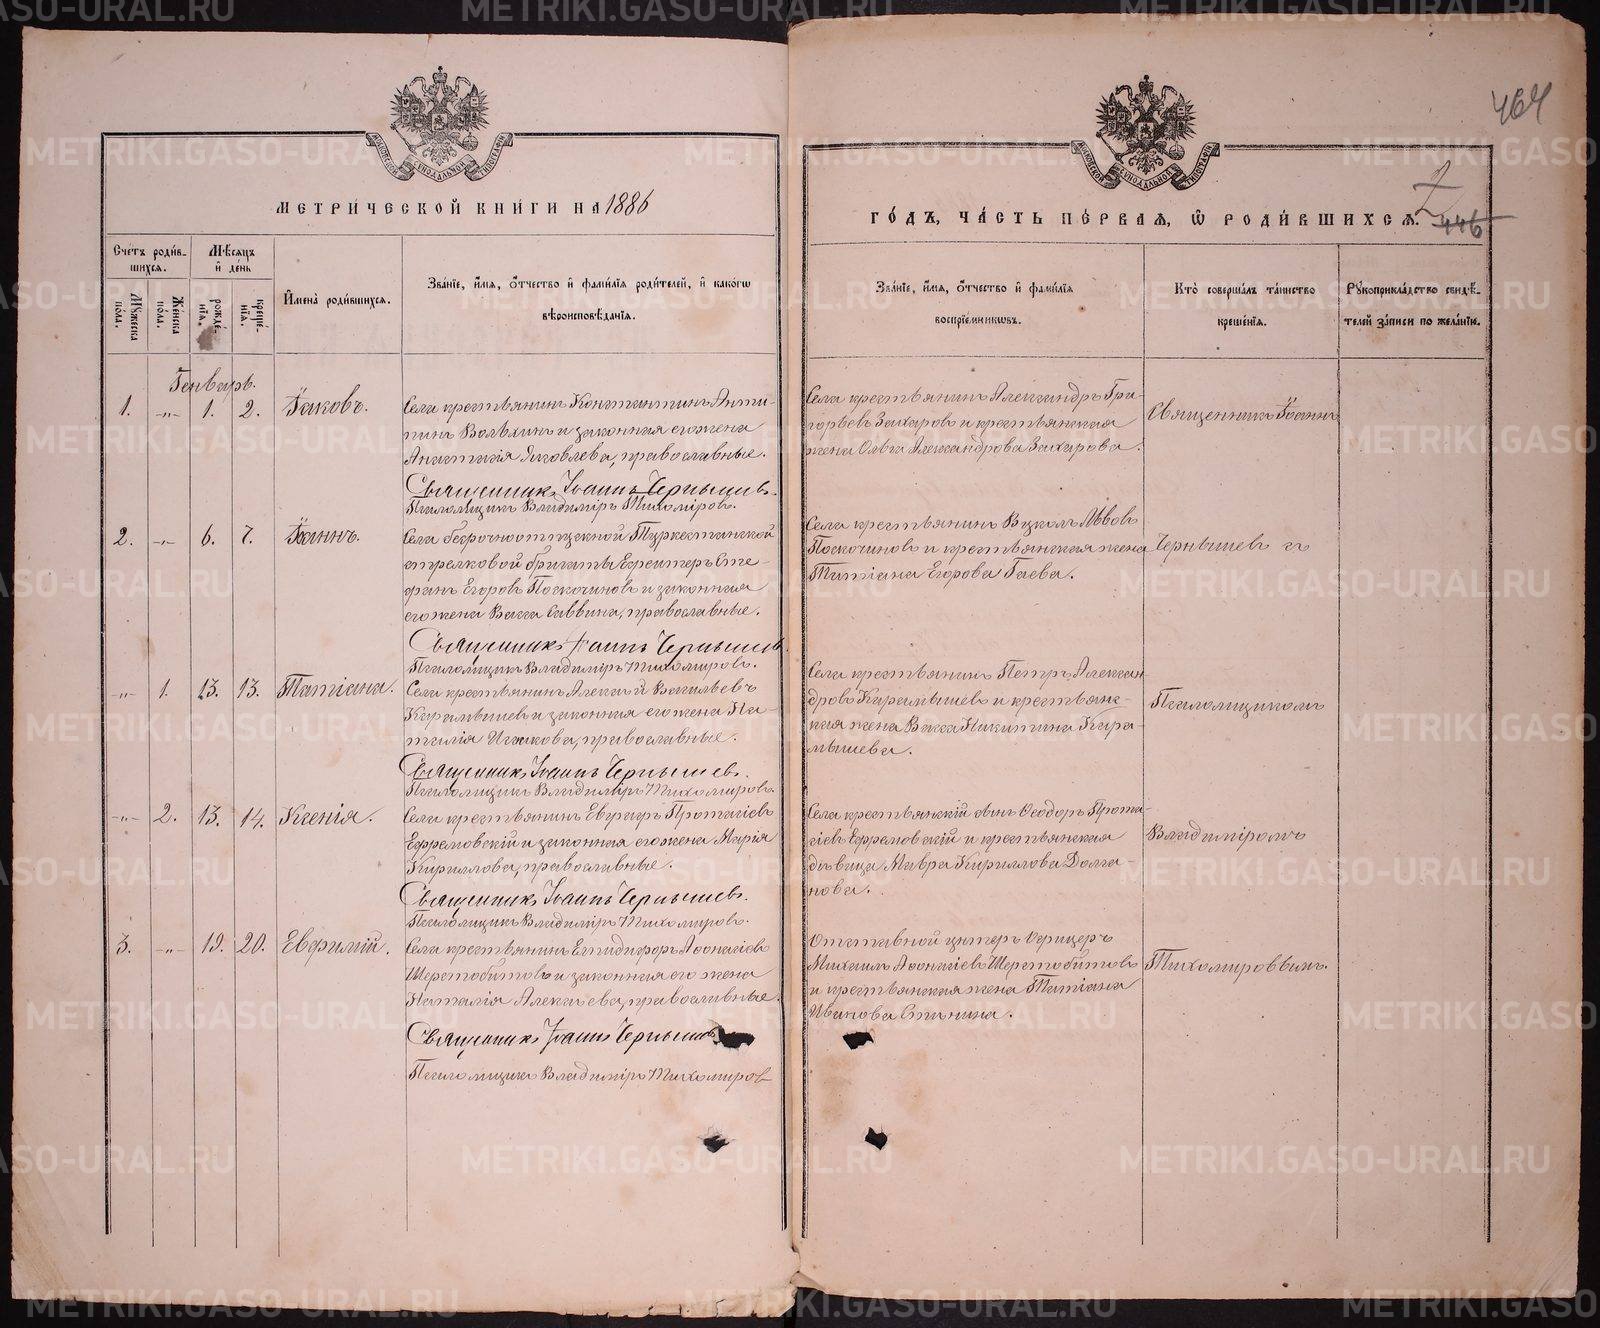 464
2
446
МОСКОВСКОЙ СѴНОДАЛЬНОЙ ТИПОГРАФІИ
МОСКОВСКОЙ СѴНОДАЛЬНОЙ ТИПОГРАФІИ
МЕТРИ́ЧЕСКОЙ КНИ́ГИ НА 1886
ГО́ДЪ, ЧА́СТЬ ПЕ́РВАЯ, Ѡ РОДИ́ВШИХСѦ.
Сче́тъ роди́в-
шихсѧ.
Мѣ́сѧцъ
и҆ де́нь
Мꙋ́жеска
по́ла.
Же́нска
по́ла.
рожде́-
нїѧ.
креще́-
нїѧ.
И҆мена̀ роди́вшихсѧ.
Зва́нїе, и҆́мѧ, о҆́тчество и҆ фами́лїѧ роди́телей, и҆ како́гѡ
вѣроисповѣ́данїѧ.
Зва́нїе, и҆́мѧ, о҆́тчество и҆ фами́лїѧ
воспрїе́мникѡвъ.
Кто̀ соверша́лъ та́инство
креще́нїѧ.
Рꙋкоприкла́дство свидѣ́-
телей за́писи по жела́нїю.
Генварь.
1. -„- 1. 2. Іаковъ.
Села крестьянинъ Константинъ Анти-
пинъ Волѣхинъ и законная его жена
Анастасія Яковлева, православные.
Священникъ Іоаннъ Чернышевъ.
Псаломщикъ Владиміръ Тихоміровъ.
Села крестьянинъ Александръ Гри-
горьевъ Захаровъ и крестьянская
жена Ольга Александрова Захарова.
Священникъ Іоаннъ
2. -„- 6. 7. Іоаннъ.
Села безсрочноотпускной Туркестанской
стрелковой бригады Ефрейторъ Сте-
фанъ Егоровъ Поскочиновъ и законная
его жена Васса Саввина, православные.
Священникъ Іоаннъ Чернышевъ
Псаломщикъ Владиміръ Тихоміровъ.
Села крестьянинъ Вуколъ Львовъ
Поскочиновъ и крестьянская жена
Татіана Егорова Гаева.
Чернышевъ съ
-„- 1. 13. 13. Татіана.
Села крестьянинъ Алексѣй Васильевъ
Карамышевъ и законная его жена На-
талія Исакова, православные.
Священникъ Іоаннъ Чернышевъ.
Псаломщикъ Владиміръ Тихоміровъ
Села крестьянинъ Петръ Алексан-
дровъ Карамышевъ и крестьянс-
кая жена Васса Никитина Кара-
мышева.
Псаломщикомъ
-„- 2. 13. 14. Ксенія.
Села крестьянинъ Евграфъ Протасіевъ
Ефремовскій и законная его жена Марія
Кириллова, православные.
Священникъ Іоаннъ Чернышевъ.
Псаломщикъ Владиміръ Тихоміровъ.
Села крестьянскій сынъ Ѳеодоръ Прота-
сіевъ Ефремовскій и крестьянская
дѣвица Мавра Кириллова Долга-
нова.
Владиміромъ
3. -„- 19. 20. Евфимій.
Села крестьянинъ Елпидифоръ Аѳонасіевъ
Шерстобитовъ и законная его жена
Наталія Алексѣева, православные.
Священникъ Іоаннъ Чернышевъ
Псаломщикъ Владиміръ Тихоміровъ
Отставной унтеръ Офицеръ
Михаилъ Аѳонасіевъ Шерстобитовъ
и крестьянская жена Татіана
Иванова Стенина.
Тихоміровымъ.